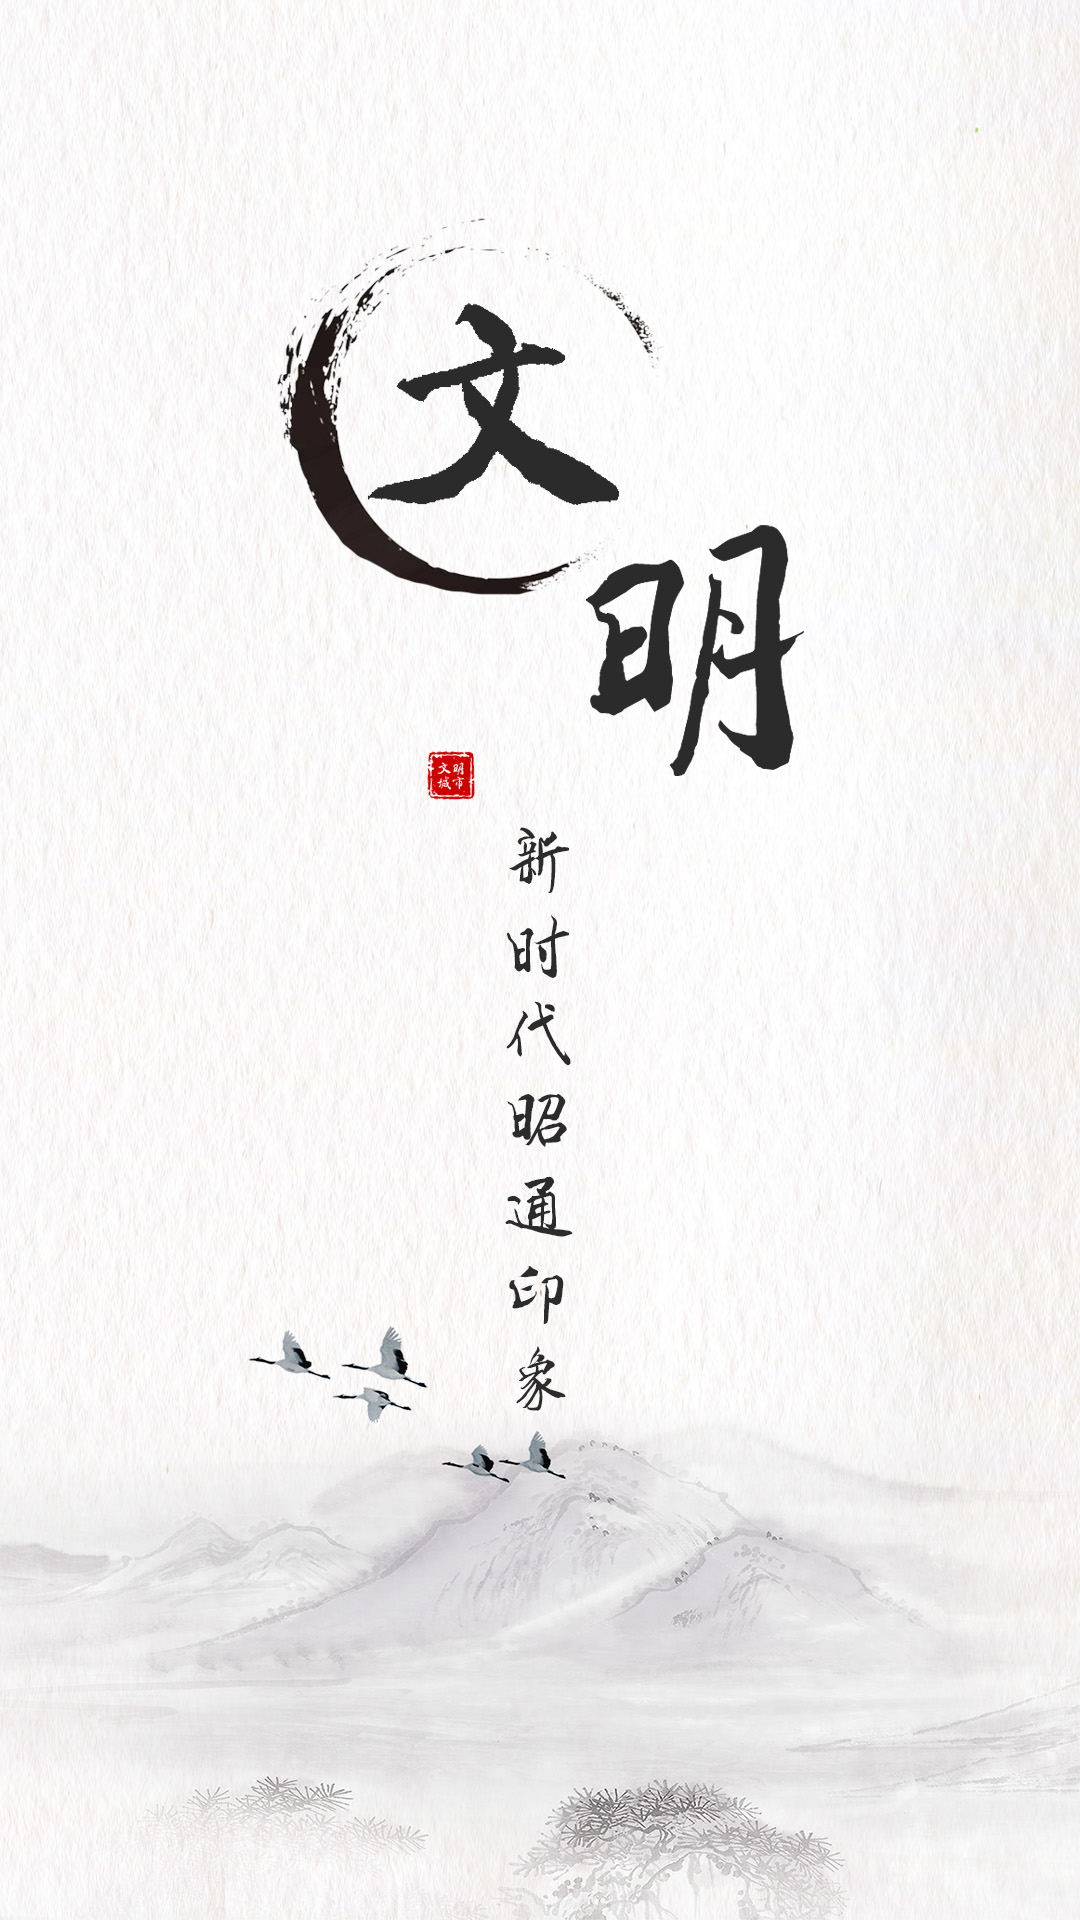 文明
文明
城市
新时代昭通印象